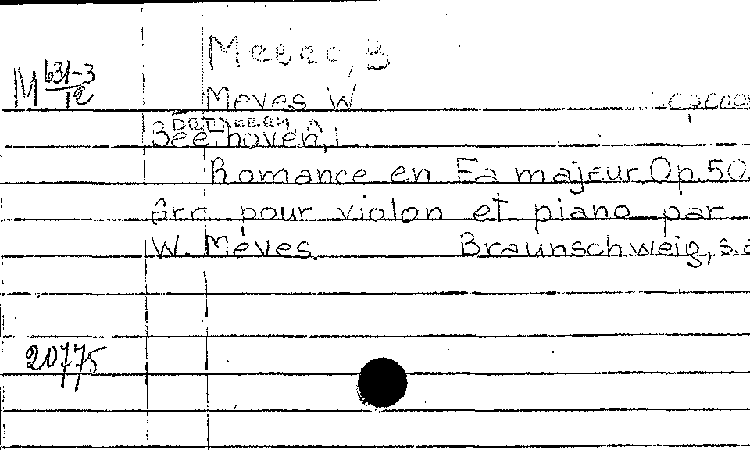 Мевес, В
M 631-3/12
Meves W
Beethoven, L
Romance en Fa majeur Op. 50
Arr. pour violon et piano par
W. Meves. Braunschweig, s.a
20775